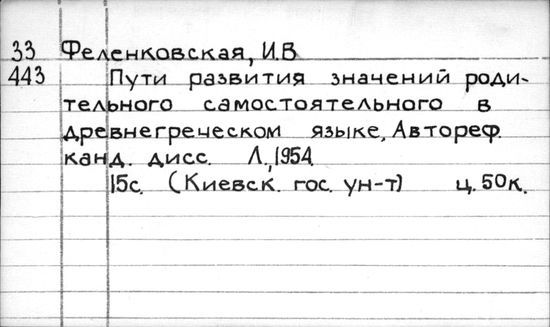 33 Феленковская, И.В
443 Пути развития значений роди-
тельного самостоятельного в
древнегреческом языке, Автореф.
канд. дисс. Л., 1954.
15с. (Киевск. гос. ун-т) ц. 50к.